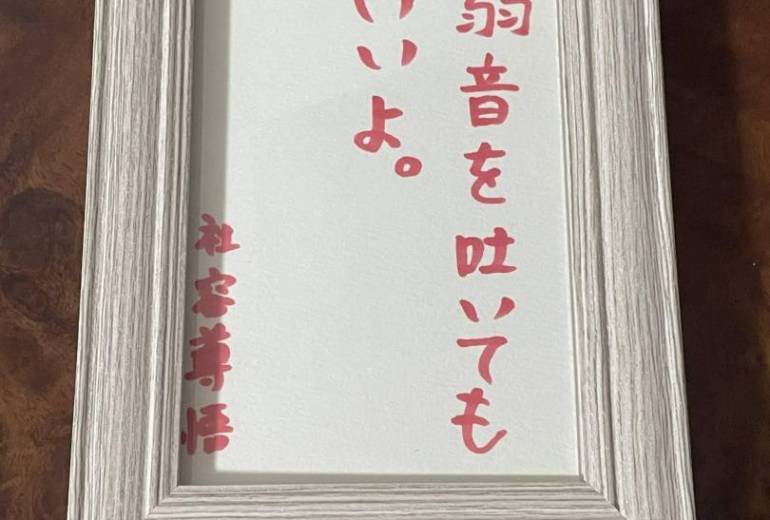 弱音を吐いても
いいよ。
社容尊悟